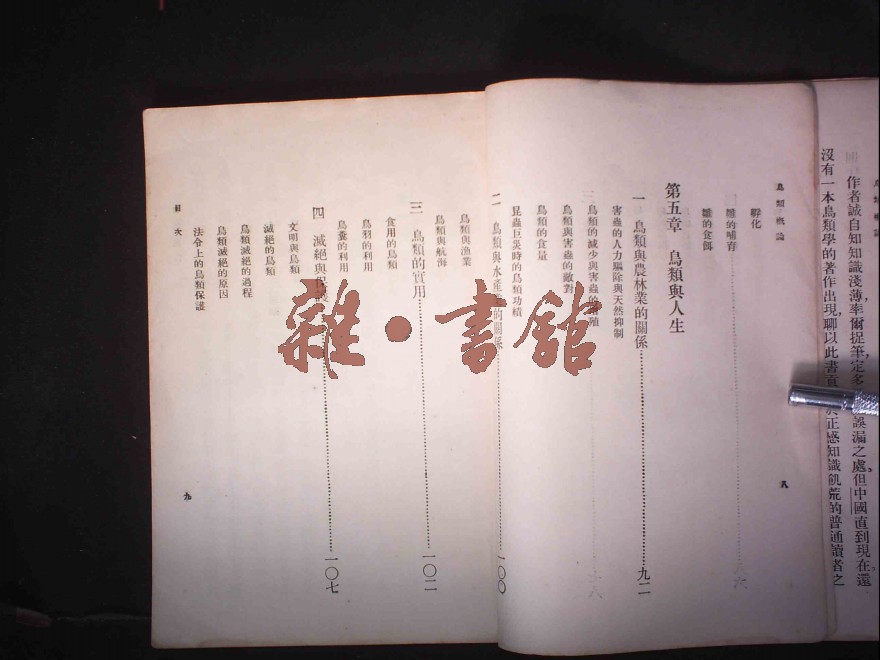 作者誠自知知識淺薄，率爾捉筆，定多誤漏之處。但中國直到現在，還
沒有一本鳥類學的著作出現，聊以此書正感知識飢荒的普通讀者之
鳥類概論
孵化
雛的哺育
雛的食餌
第五章 鳥類與人生
一 鳥類與農林業的關係……九二
害蟲的人力驅除與天然抑制
鳥類的減少與害蟲的殖
鳥類與害蟲的敵對
鳥類的食量
昆蟲巨災時的鳥類功績
八
二 鳥類與水產的關係……一〇〇
鳥類與漁業
鳥類與航海
三 鳥類的實用……一〇二
食用的鳥類
鳥羽的利用
鳥糞的利用
四 滅絕與保護……一〇七
文明與鳥類
滅絕的鳥類
鳥類滅絕的過程
鳥類滅絕的原因
法令上的鳥類保護
目次
九
雜·書館